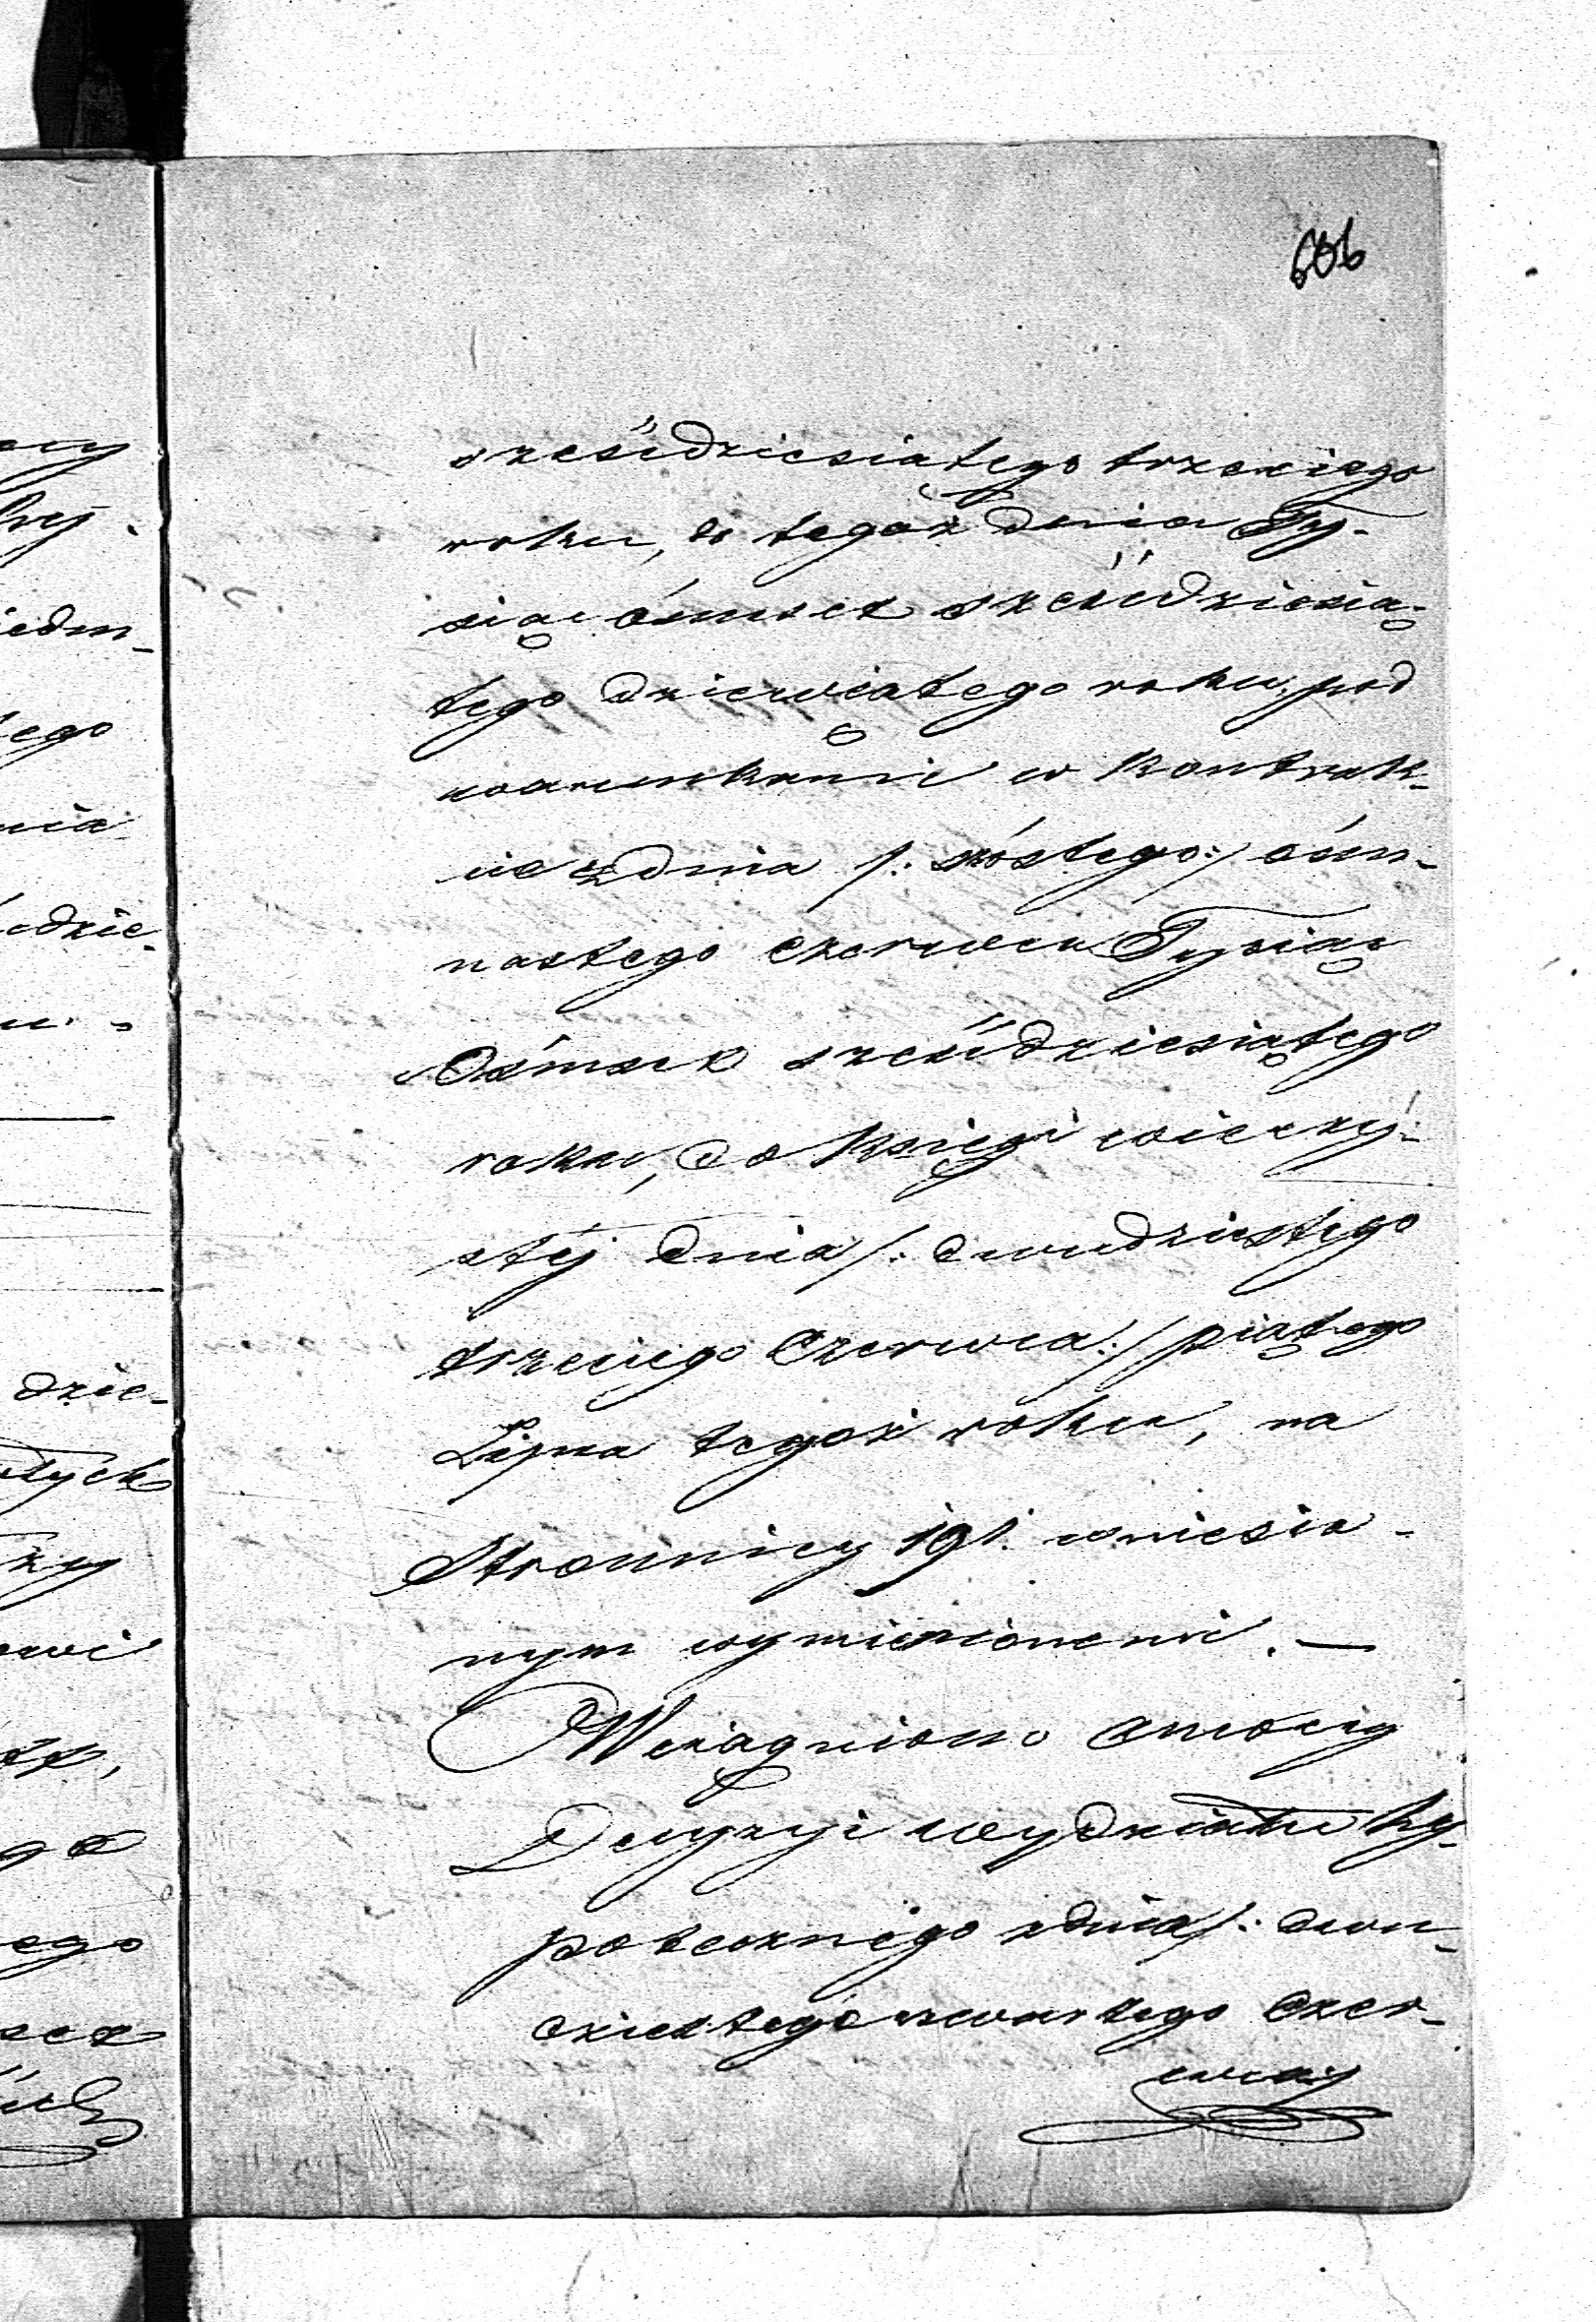 606
sześćdziesiątego trzeciego
roku, do tegoż dnia Ty-
siąc ośmset sześćdziesią-
tego dziewiątego roku, pod
warunkami w kontrak-
cie z dnia /: szóstego :/ óśm-
nastego czerwca Tysiąc
Ośmset sześćdziesiątego
roku, do księgi wieczy-
stéj dnia /: dwudziestego
trzeciego Czerwca :/ piątego
Lipca tegoż roku, na
Stronnicy 191. wniesio-
nym wymienionemi. —
Wciągniono z mocy
Decyzyi Wydziału hy-
potecznego z dnia /: dwu-
dziestego czwartego Czer-
wca :/